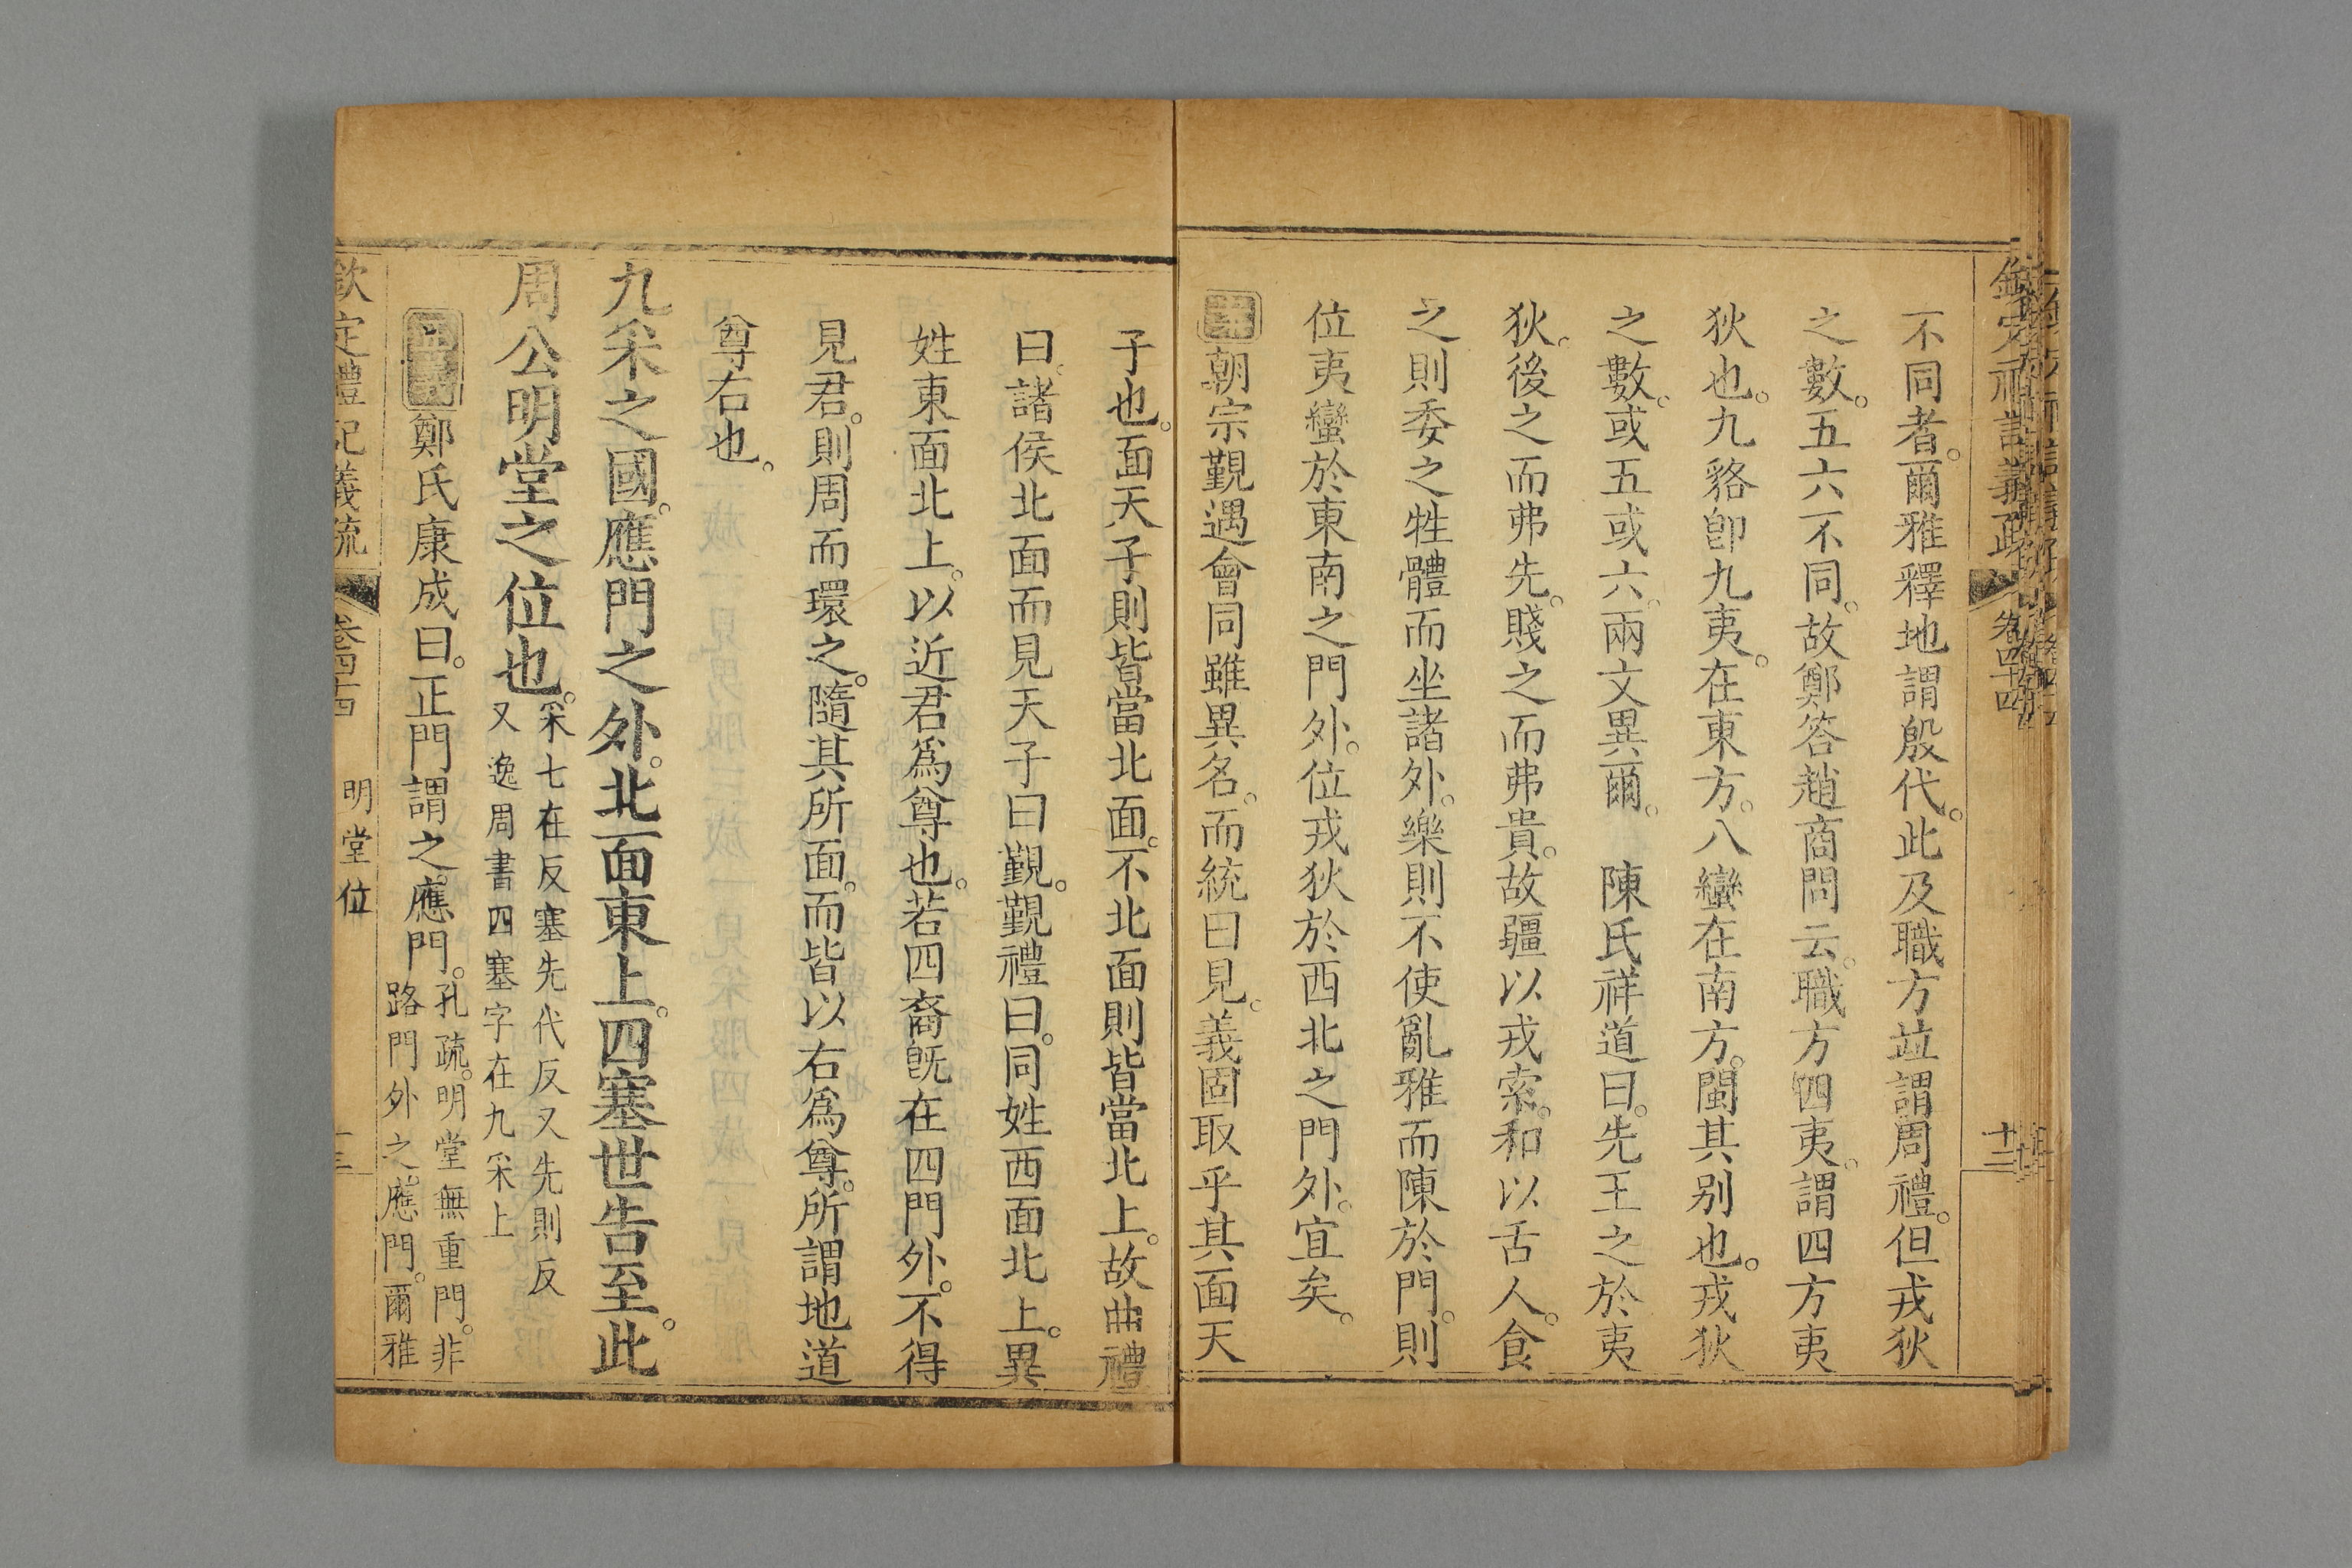 不同者。爾雅釋地謂殷代。此及職方竝謂周禮。但戎狄
之數。五六不同。故鄭答趙商問云。職方四夷。謂四方夷
狄也。九貉卽九夷。在東方。八蠻在南方。閩其别也。戎狄
之數。或五或六。兩文異爾。　陳氏祥道曰。先王之於夷
狄。後之而弗先。賤之而弗貴。故疆以戎索。和以舌人。食
之則委之牲體而坐諸外。樂則不使亂雅而陳於門。則
位夷蠻於東南之門外。位戎狄於西北之門外。宜矣。
朝宗覲遇會同雖異名。而統曰見。義固取乎其面天
子也。面天子則皆當北面。不北面則皆當北上。故曲禮
曰。諸侯北面而見天子曰覲。覲禮曰。同姓西面北上。異
姓東面北上。以近君爲尊也。若四裔旣在四門外。不得
見君。則周而環之。隨其所面。而皆以右爲尊。所謂地道
尊右也。
九采之國。應門之外。北面東上。四塞世告至。此
周公明堂之位也。采七在反塞先代反又先則反
又逸周書四塞字在九采上
鄭氏康成曰。正門謂之應門。孔疏。明堂無重門。非
路門外之應門。爾雅
欽定禮記義疏 卷四十四 明堂位 十三